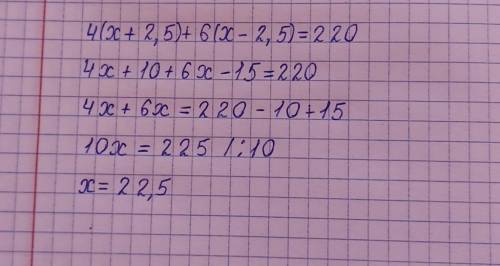 4(x+2,5)+6(x-2,5)=220
4x+10+6x-15=220
4x+6x=220-10+15
10x=225 /:10
x=22,5